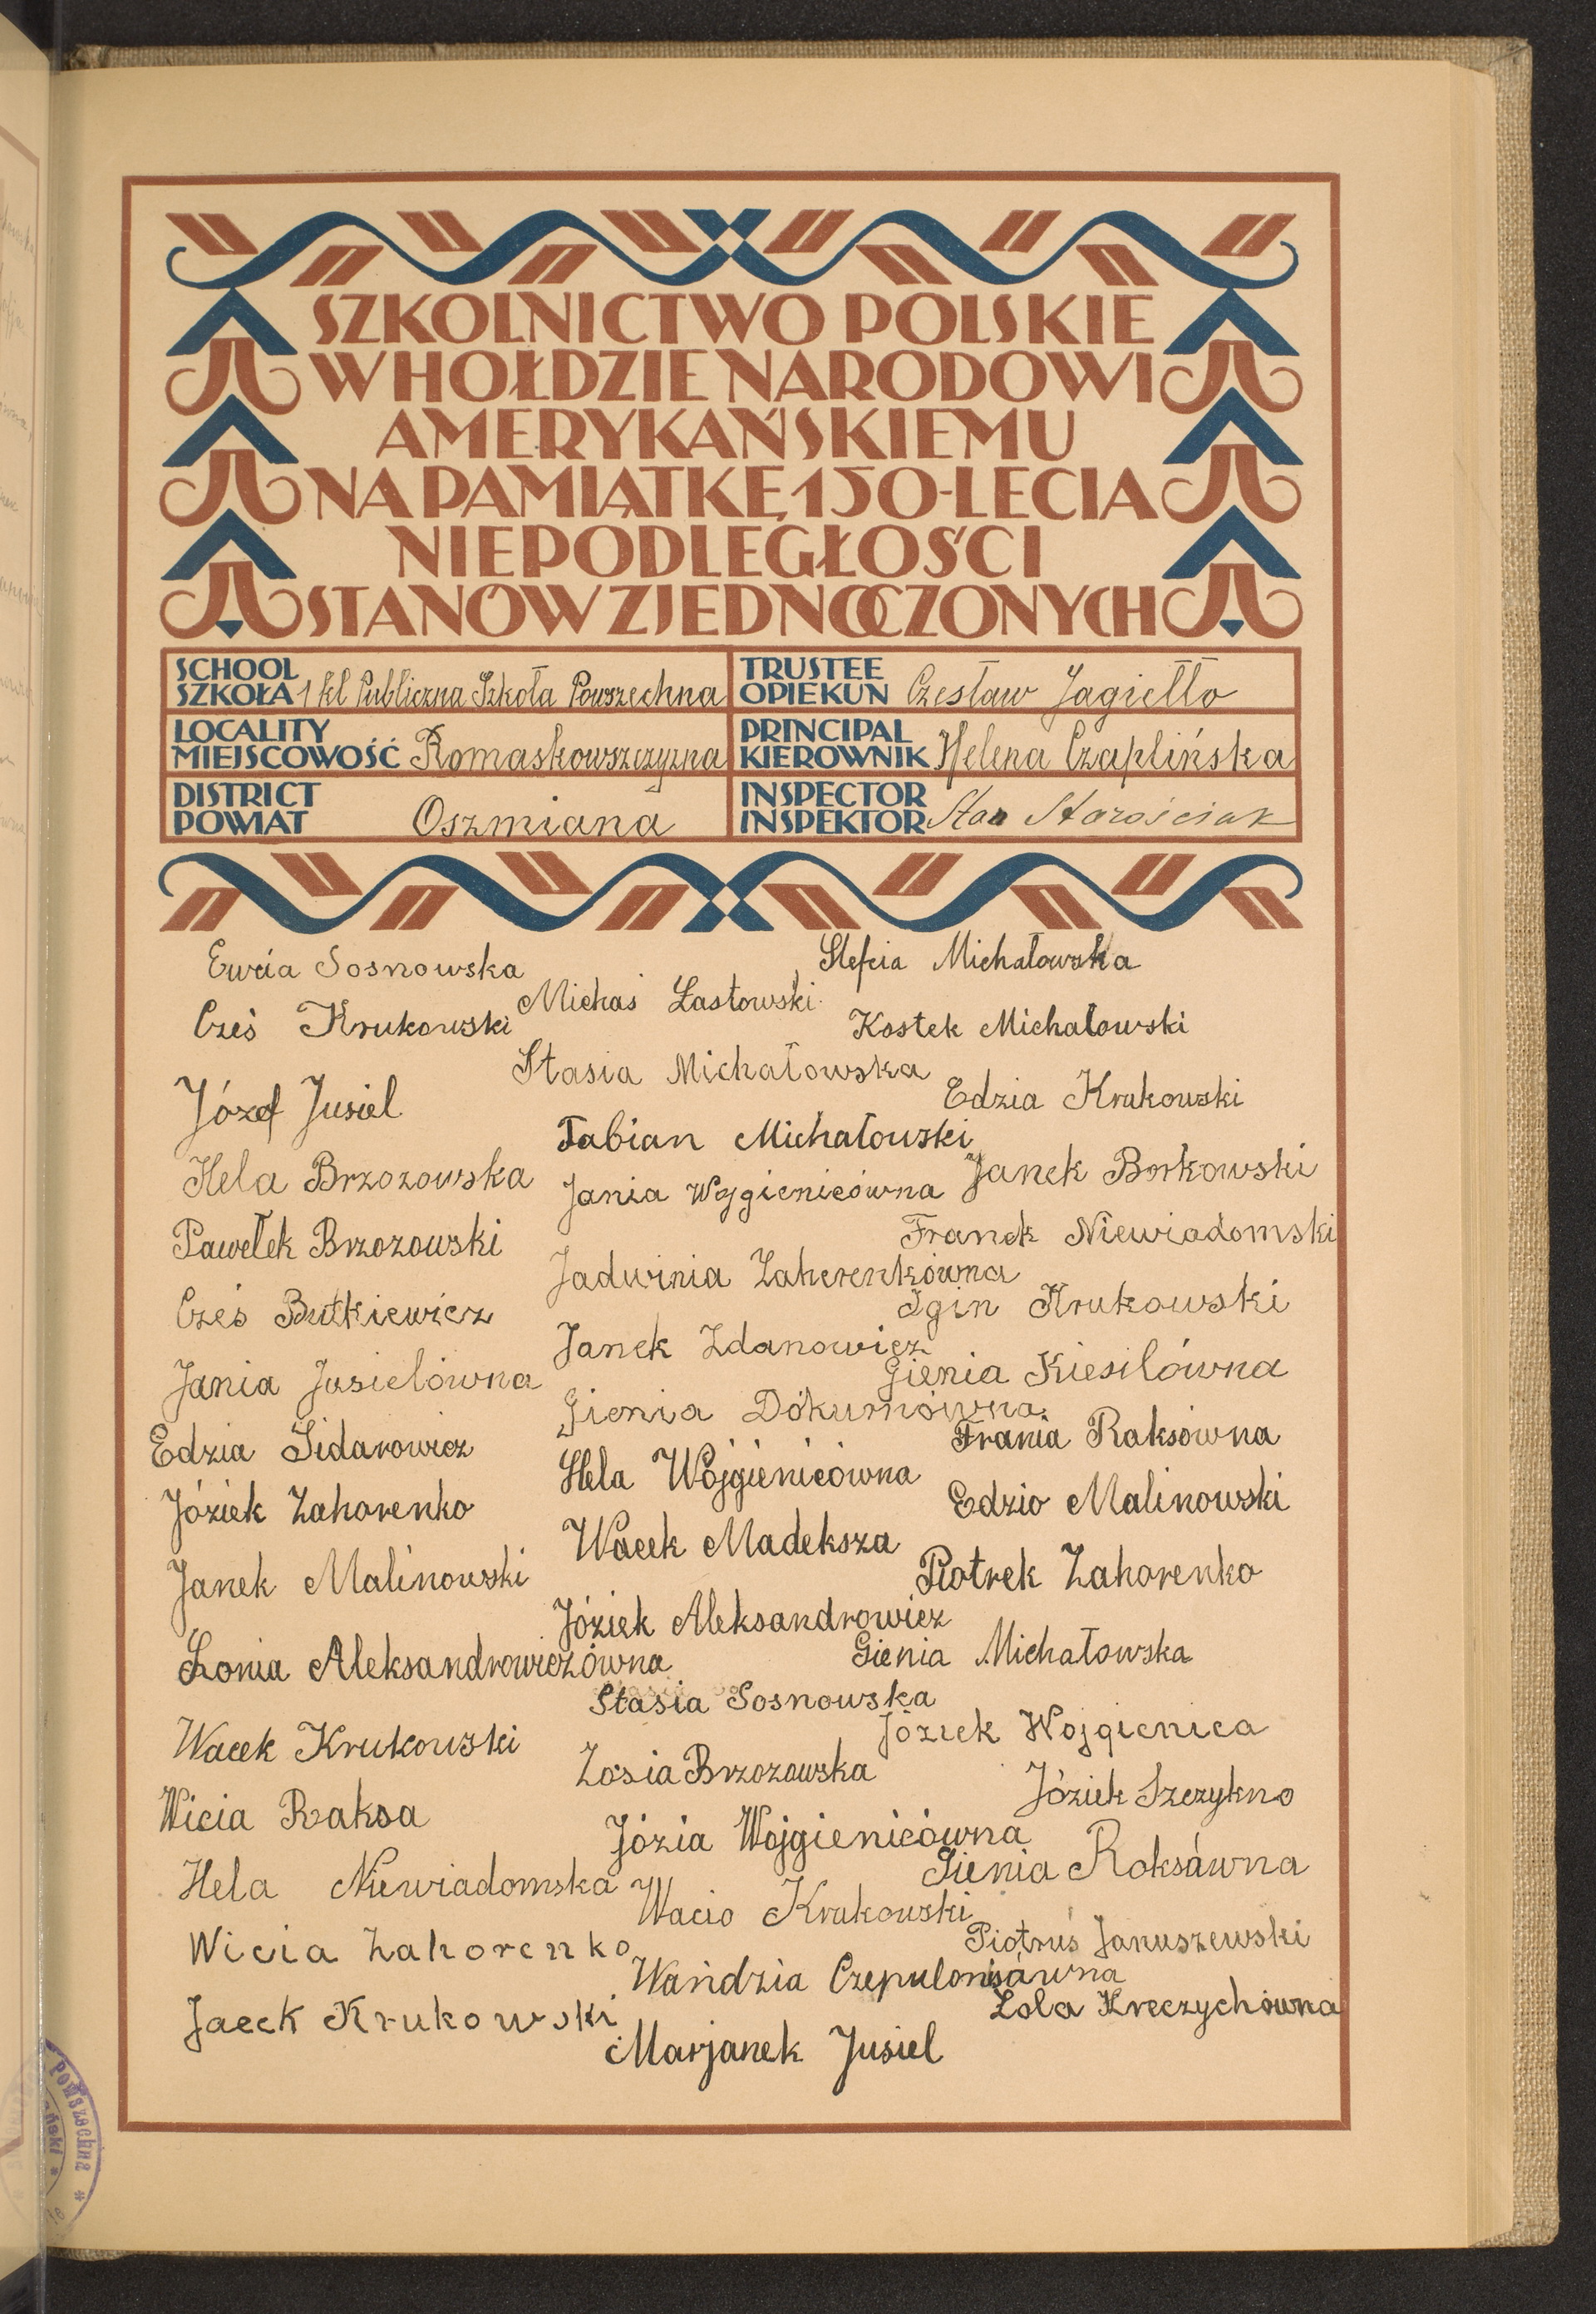 SZKOLNICTWO POLSKIE
W HOŁDZIE NARODOWI
AMERYKAŃSKIEMU
NA PAMIĄTKĘ 150-LECIA
NIEPODLEGŁOŚCI
STANÓW ZJEDNOCZONYCH
SCHOOL
SZKOŁA 1 kl Publiczna Szkoła Powszechna
TRUSTEE
OPIEKUN Czesław Jagiełło
LOCALITY
MIEJSCOWOŚĆ Romaskowszczyzna
PRINCIPAL
KIEROWNIK Helena Czaplińska
DISTRICT
POWIAT Oszmiana
INSPECTOR
INSPEKTOR Stan Starościak
Ewcia Sosnowska
Cześ Krukowski
Józef Jusiel
Hela Brzozowska
Pawełek Brzozowski
Cześ Butkiewicz
Jania Jusielówna
Edzia Sidarowicz
Józiek Zahorenko
Janek Malinowski
Lonia Aleksandrowiczówna
Wacek Krukowski
Wicia Raksa
Hela Niewiadomska
Wicia Zahorenko
Jacek Krukowski
Michaś Łastowski
Stasia Michałowska
Fabian Michałowski
Jania Wojgienicówna
Jadwinia Zaherenkówna
Janek Zdanowicz
Gienia Dokurnówna
Hela Wojgienicówna
Wacek Madeksza
Józiek Aleksandrowicz
Stasia Sosnowska
Zosia Brzozowska
Józia Wojgienicówna
Wacio Krukowski
Wandzia Czepulonisówna
Marjanek Jusiel
Stefcia Michałowska
Kostek Michałowski
Edzia Krukowski
Janek Borkowski
Franek Niewiadomski
Igin Krukowski
Gienia Kiesilówna
Frania Raksówna
Edzio Malinowski
Piotrek Zahorenko
Gienia Michałowska
Józiek Wojgienica
Józiek Szczykno
Gienia Roksówna
Piotruś Januszewski
Lola Kreczychówna
Powszechna